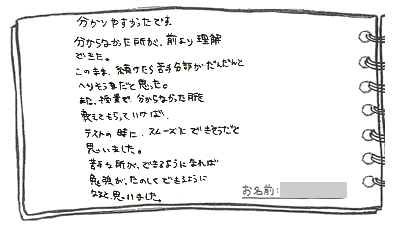 分かりやすかったです。
分からなかった所が、前より理解
できた。
このまま、続けたら苦手分部がだんだんと
へりそうだと思った。
また、授業で分からなかった所を
教えてもらっていけば、
テストの時に、スムーズにできそうだと
思いました。
苦手な所が、できるようになれば
勉強が、たのしくできるように
なると思いました。
お名前: